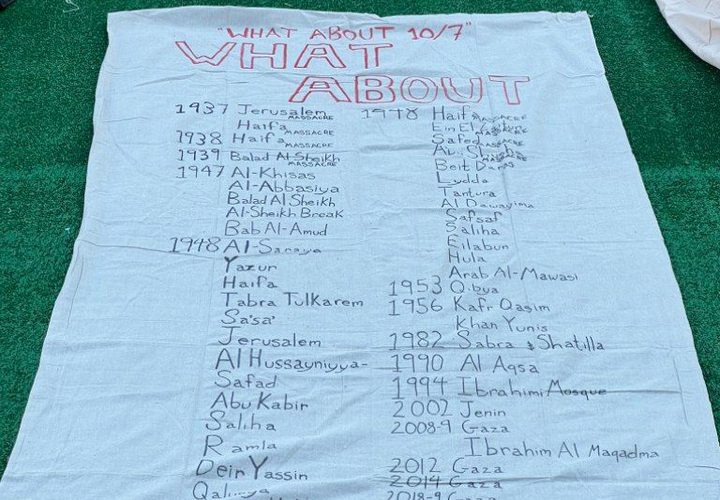 "WHAT ABOUT 10/7"
WHAT
ABOUT
1937 Jerusalem MASSACRE
Haifa MASSACRE
1938 Haifa MASSACRE
1939 Balad Al-Sheikh MASSACRE
1947 Al-Khisas
Al-Abbasiya
Balad Al Sheikh
Al-Sheikh Break
Bab Al-Amud
1948 Al-Saraya
Yazur
Haifa
Tabra Tulkarem
Sa'sa'
Jerusalem
Al Hussayniyya-
Safad
Abu Kabir
Saliha
Ramla
Dein Yassin
1948 Haifa MASSACRE
Ein El
Safed MASSACRE
Abu
Beit
Lydda
Tantura
Al Dawayima
Safsaf
Saliha
Eilabun
Hula
Arab Al-Mawasi
1953 Qibya
1956 Kafr Qasim
Khan Yunis
1982 Sabra & Shatilla
1990 Al Aqsa
1994 Ibrahimi Mosque
2002 Jenin
2008-9 Gaza
Ibrahim Al Maqadma
2012 Gaza
2014 Gaza
2018-9 Gaza